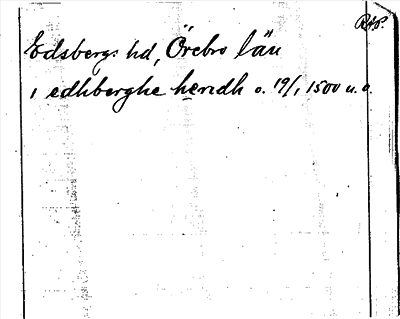 RAP.
Edsbergs hd, Örebro län
i edhberghe heredh o. 19/1 1500 u. o.